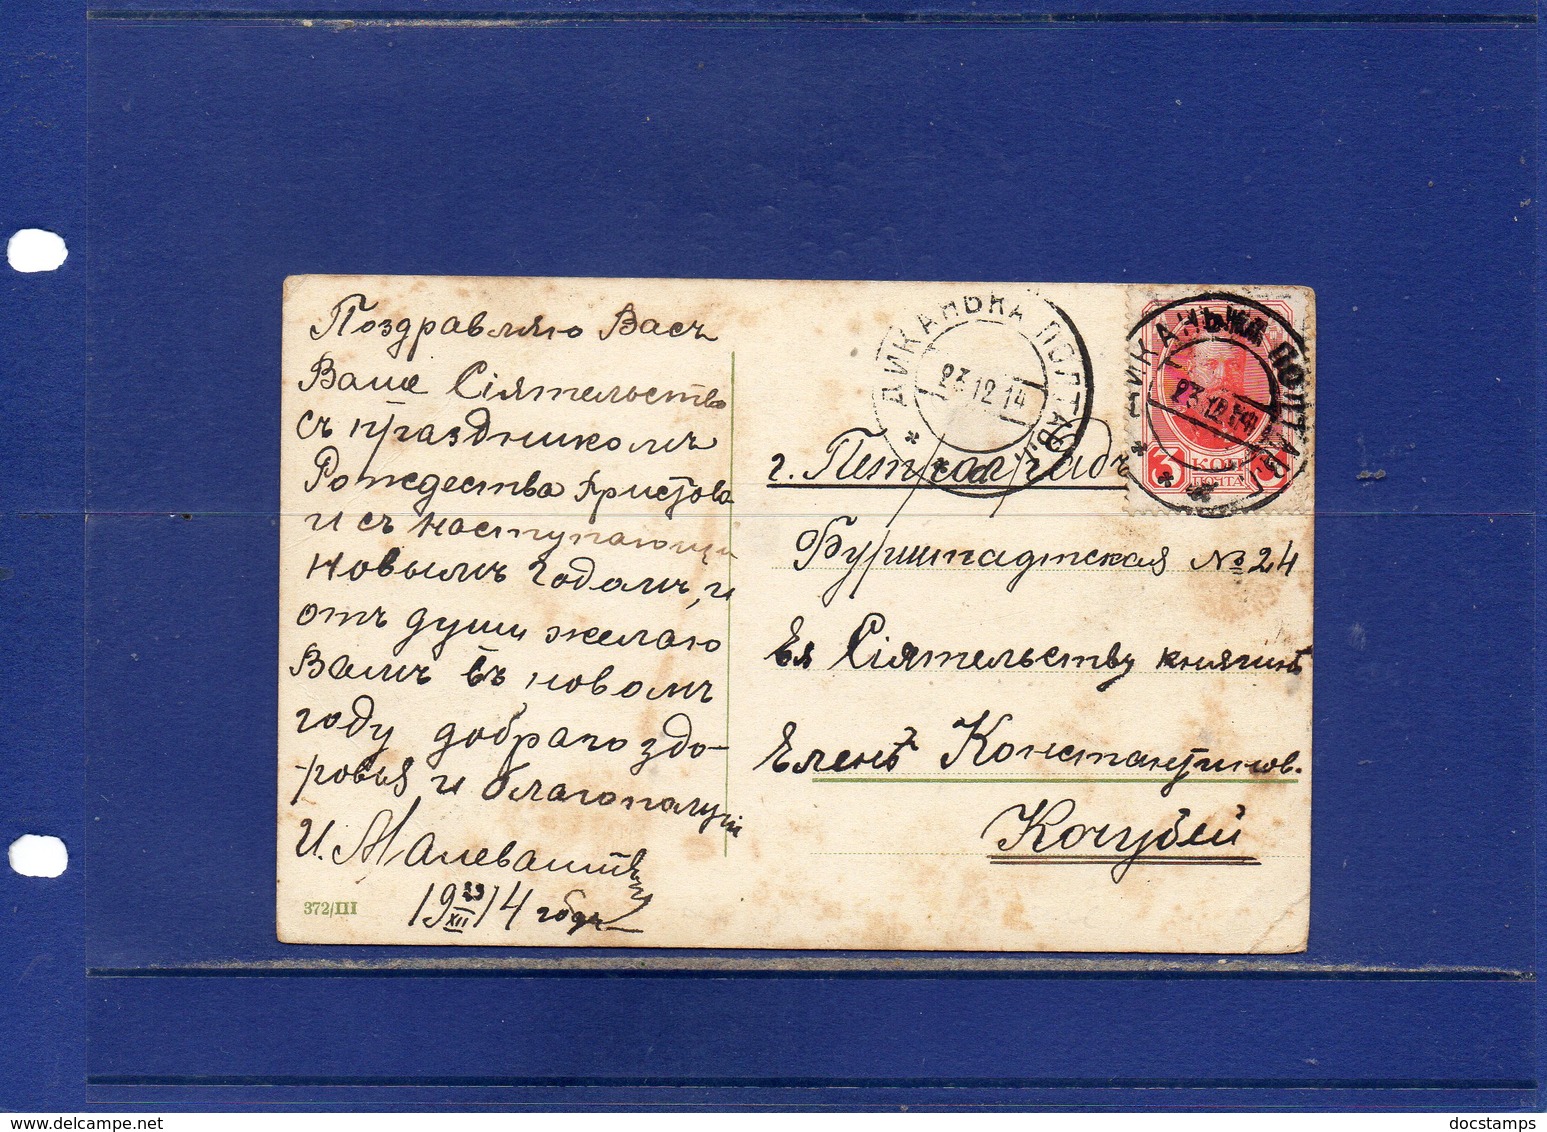 Поздравляю Васъ
Ваше Сіятельство
съ праздникомъ
Рождества Христова
и съ наступающи
Новымъ Годомъ, и
отъ души желаю
Вамъ въ новомъ
году добраго здо-
ровья и благополучі
И.
19 23/XII 14 года
372/III
ДИКАНЬКА ПОЛТАВ. Г.
23.12.14
ДИКАНЬКА ПОЛТАВ. Г.
23.12.14
3 КОП 3
ПОЧТА
г. Петроградъ
Бурштадтская № 24
Ея Сіятельству княгинѣ
Еленѣ Константинов.
Кочубей
docstamps